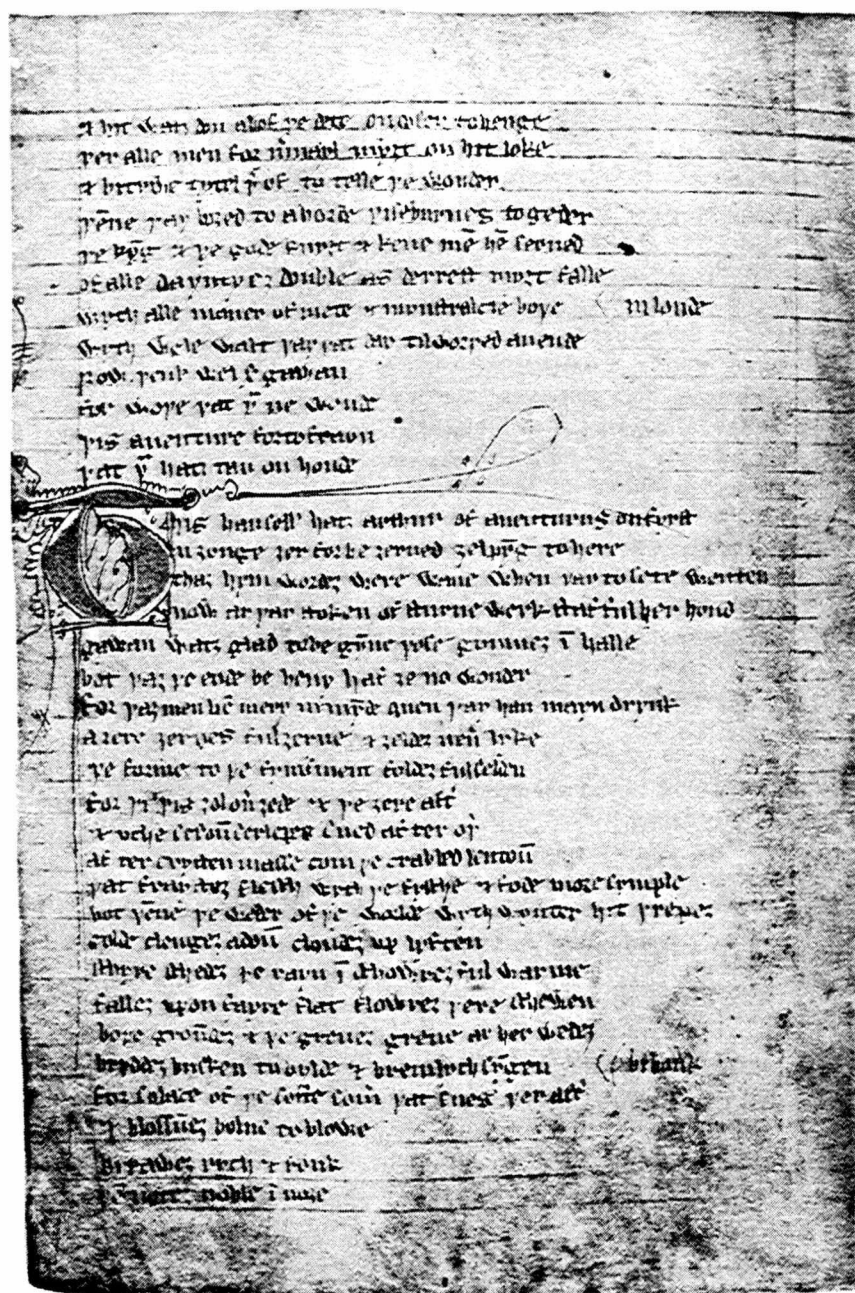 & hit watz don abof þe dece on doser to henge
þer alle men for m̅uayl myȝt on hit loke
& bi trwe tytel þ̅of to telle þe wonder
þēne þay boȝed to a borde þise burnes togeder
þe kȳg & þe gode knyȝt & kene mē hē serued
of alle dayntyeȝ double as derrest myȝt falle
wyth alle maner of mete & mynstralcie boþe in londe
wyth wele walt þay þat day til worþed an ende
now þenk wel S̅ gawan
for woþe þat þᵘ ne wonde
þis auenture forto frayn
þat þᵘ hatȝ tan on honde
This hanselle hatȝ arthur of auenturus on fyrst
in ȝonge ȝer for he ȝerned ȝelpȳg to here
thaȝ hym wordeȝ were wane when þay to sete wenten
now ar þay stoken of sturne werk staf ful her hond
gawan watȝ glad to be gȳne þose gomneȝ ī halle
bot þaȝ þe ende be heuy haf ȝe no wonder
for þaȝ men bē mery ī mȳde quen þay han mayn drynk
a ȝere ȝernes ful ȝerne & ȝeldeȝ neu̅ lyke
þe forme to þe fynisment foldeȝ ful selden
for þi þis ȝol ou̅ȝede & þe ȝere aft̅
& vche sesoū serlepes sued after oþ̅
after crysten masse com þe crabbed lentoū
þat fraysteȝ flesch wyth þe fysche & fode more symple
bot þēne þe weder of þe worlde wyth wynter hit þrepeȝ
colde clengeȝ adoū cloudeȝ vp lyften
schyre schedeȝ þe rayn ī schowreȝ ful warme
falleȝ vpon fayre flat flowreȝ þere schewen
boþe groūdeȝ & þe greueȝ grene ar her wedeȝ
bryddeȝ busken to bylde & bremlych syngen bi bonk
for solace of þe softe som̅ þat sues þ̅ aft̅
& blossūeȝ bolne to blowe
bi raweȝ rych & ronk
þēn noteȝ noble ī noȝe